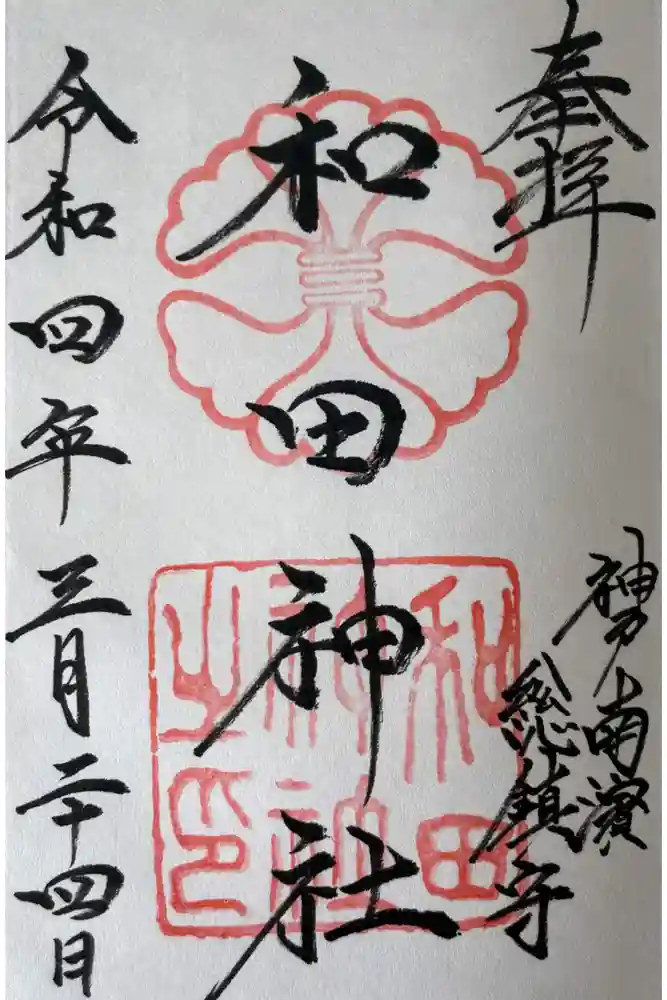 奉拝
神戸南濱
総鎮守
和田神社
令和四年三月二十四日
和田
神社
之印